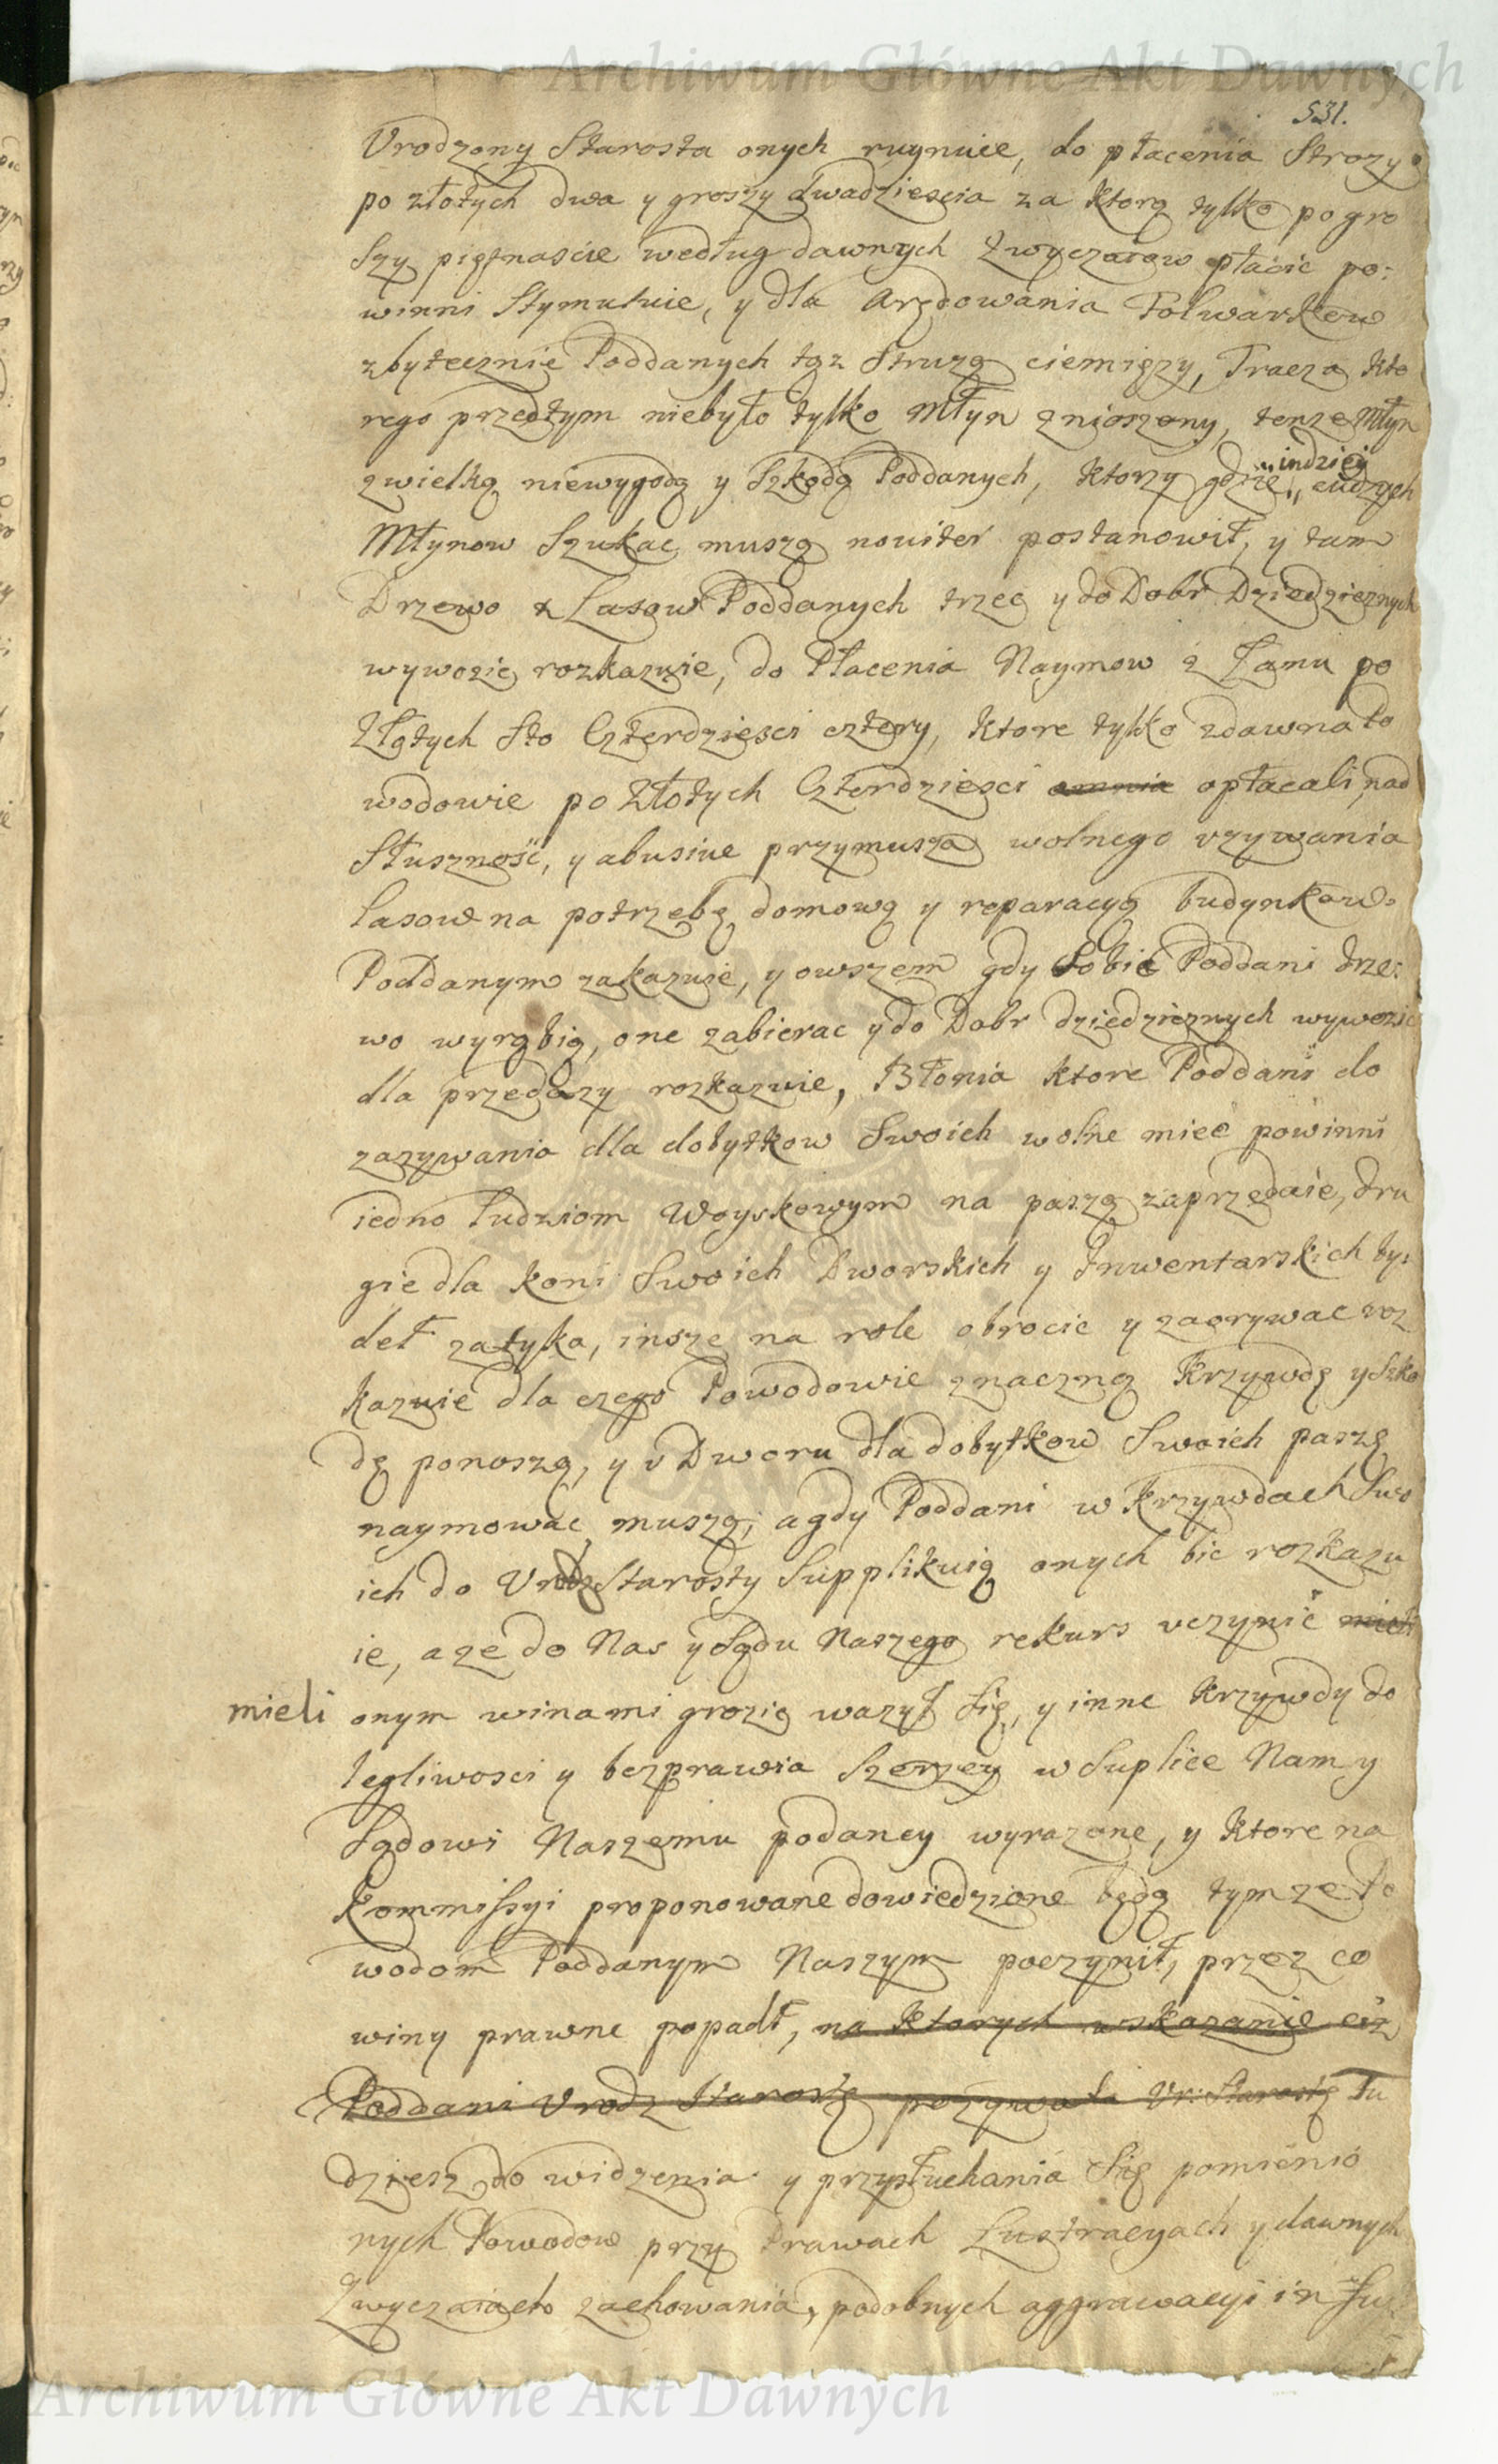 Archiwum Główne Akt Dawnych
531.
Urodzony Starosta onych ruynuie, do płacenia Strozy
po złotych dwa y groszy dwadziescia za ktorą tylko po gro
szy piętnascie według dawnych zwyczaiow płacic po:
winni Stymuluie, y dla Arędowania Folwarkow
zbytecznie Poddanych tąz Struzą ciemięzy, Tracza kto
rego przedtym niebyło tylko Młyn znioszony, tenze Młyn
z wielką niewygodą y Szkodą Poddanych, ktorzy gdzie indziey cudzych
Młynow Szukac muszą noviter postanowił, y tam
Drzewo z Lasow Poddanych trzec y do Dobr Dziedzicznych
wywozic rozkazuie, do Płacenia Naymow z Łanu po
Złotych Sto Czterdziesci cztery, ktore tylko zdawna Po
wodowie po Złotych Czterdziesci omnia opłacali, nad
Słusznosc, y abusive przymusza wolnego uzywania
Lasow na potrzebę domową y reparacyą budynkow
Poddanym zakazuie, y owszem gdy Sobie Poddani drze:
wo wyrąbią, one zabierac y do Dobr dziedzicznych wywozic
dla przedazy rozkazuie, Błonia ktore Poddani do
zazywania dla dobytkow Swoich wolne miec powinni
iedno Ludziom Woyskowym na paszą zaprzedaie, dru
gie dla koni Swoich Dworskich y Inwentarskich by:
deł zatyka, insze na role obrocic y zaorywac roz
kazuie dla czego Powodowie znaczną krzywdę y Szko
dę ponoszą, y u Dworu dla dobytkow Swoich paszę
naymowac muszą, a gdy Poddani w krzywdach Swo
ich do Urodz Starosty Supplikuią onych bic rozkazu
ie, a ze do Nas y Sądu Naszego rekurs uczynic mieli
mieli onym winami grozic wazył Się, y inne krzywdy do
legliwosci y bezprawia Szerzey w Suplice Nam y
Sądowi Naszemu podaney wyrazone, y ktore na
Kommissyi proponowane dowiedzione będą tymze Po
wodom Poddanym Naszym poczynił, przez co
winy prawne popadł, na ktorych wskazanie ciz
Poddani Urodz Starostę pozywaią Ur: Starostę Tu
dziesz do widzenia y przysłuchania Się pomienio
nych Powodow przy Prawach Lustracyach y dawnych
Zwyczaiach zachowania, podobnych aggrawacyi in
Archiwum Główne Akt Dawnych